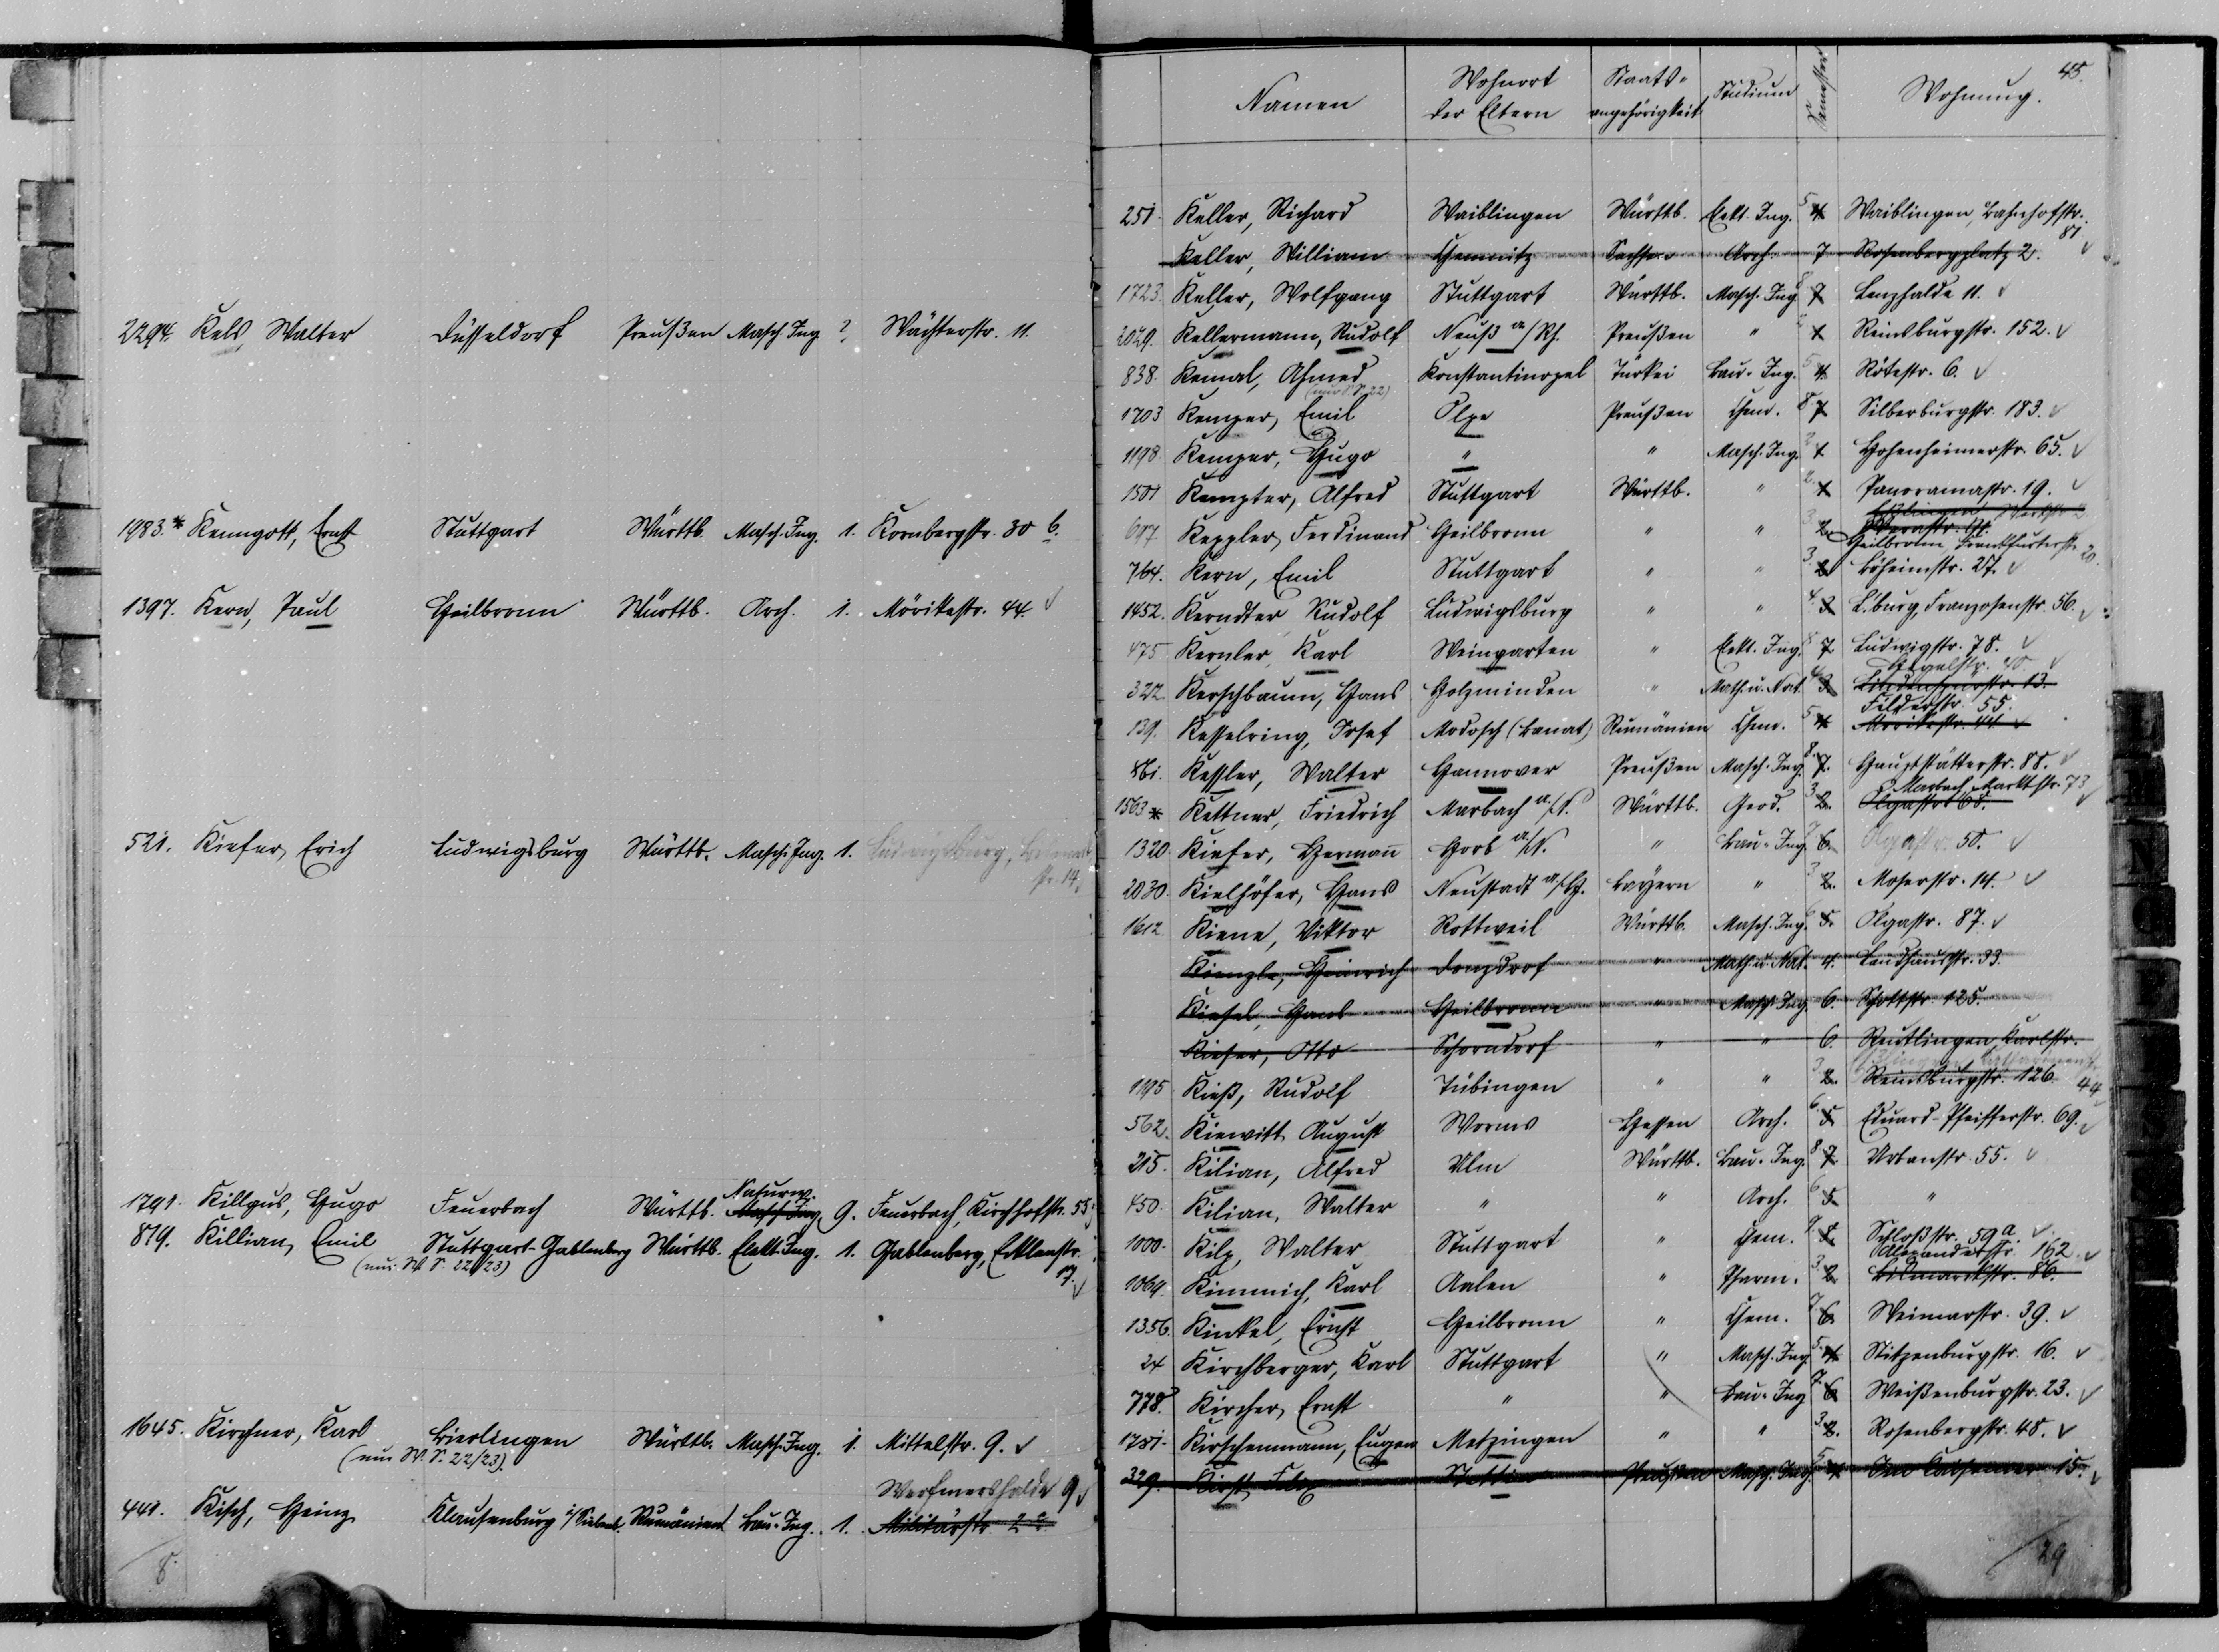 2294. Kels, Walter Düsseldorf Preußen Masch. Ing. ? Wächterstr. 11.
1983.* Kenngott, Ernst Stuttgart Württb. Masch. Ing. 1. Kornbergstr. 30 b.
1397. Kern, Paul Heilbronn Württb. Arch. 1. Mörikestr. 44.
521. Kiefer, Erich Ludwigsburg Württb. Masch. Ing. 1. Ludwigsburg,
str. 14.
Naturw.
1791. Killgus, Hugo Feuerbach Württb. Masch. Ing. 9. Feuerbach, Kirchhofstr. 55
819. Killian, Emil Stuttgart-Gablenberg Württb. Elekt. Ing. 1. Gablenberg,
(nur W. S. 22/23)
1645. Kirchner, Karl Bierlingen Württb. Masch. Ing. 1. Mittelstr. 9.
(nur W. S. 22/23).
Werfmershalde 9
441. Kisch, Heinz Klausenburg i/Siebenb. Rumänien Bau-Ing. 1. Militärstr. 2a
8.
45.
Namen Wohnort der Eltern Staats-angehörigkeit Studium Semester Wohnung.
251. Keller, Richard Waiblingen Württb. Elekt. Ing. 5 4. Waiblingen, Bahnhofstr.
81
Keller, William Chemnitz Sachsen Arch. 7 Rosenbergplatz 2.
1723. Keller, Wolfgang Stuttgart Württb. Masch. Ing. 8 7 Lenzhalde 11.
2029. Kellermann, Rudolf Neuß a/Rh. Preußen " 2 1 Reinsburgstr. 152.
838. Kemal, Ahmed Konstantinopel Türkei Bau-Ing. 5 4. Rötestr. 6.
(nur S. S. 22)
1703 Kemper, Emil Olpe Preußen Chem. 8 7 Silberburgstr. 183.
1198. Kemper, Hugo " " Masch. Ing. 2 1 Hohenheimerstr. 65.
1501 Kempter, Alfred Stuttgart Württb. " 2. 1 Panoramastr. 19.
687 Keppler, Ferdinand Heilbronn " " 3. 2.
Heilbronn Frankfurterstr. 20.
764. Kern, Emil Stuttgart " " 3. 2 Böheimstr. 27.
1452. Kerndter Rudolf Ludwigsburg " " 4. 3 L.burg, Franzosenstr. 56.
475 Kernler, Karl Weingarten " Elekt. Ing. 8 7. Ludwigstr. 78.
Hegelstr. 40.
322. Kerschbaum, Hans Holzminden " Math. u. Nat. 4. 3. Lindenspürstr. 13.
Filderstr. 55.
139. Kesselring, Josef Modosch (Banat) Rumänien Chem. 5 4. Mörikestr. 44
861. Kessler, Walter Hannover Preußen Masch. Ing. 8. 7. Hauptstätterstr. 88.
Marbach, Marktstr. 73
1563* Kettner, Friedrich Marbach a./N. Württb. Geod. 3 2. Olgastr. 68.
1320 Kiefer, Hermann Horb a./N. " Bau-Ing. 7 6. Olgastr. 50.
2030. Kielhöfer, Hans Neustadt a./H. Bayern " 3 2. Moserstr. 14.
1612 Kiene, Viktor Rottweil Württb. Masch. Ing. 6 5. Olgastr. 87.
Kienzle, Heinrich Donzdorf " Math. u. Nat. 4. Landhausstr. 33.
Kiesel, Hans Heilbronn " Masch. Ing. 6. Schottstr. 125.
Kieser, Otto Schorndorf " " 6. Reutlingen, Karlstr.
1195 Kieß, Rudolf Tübingen " " 3 2. Reinsburgstr. 126 44
562. Kiewitt, August Worms Hessen Arch. 6. 5 Eduard-Pfeifferstr. 69.
215. Kilian, Alfred Ulm Württb. Bau-Ing. 8 7. Urbanstr. 55.
450. Kilian, Walter " " Arch. 6. 5. "
1000. Kilp, Walter Stuttgart " Chem. 9. 8. Schloßstr. 59a.
Alexanderstr. 162
1069. Kimmich, Karl Aalen " Pharm. 3. 2. Bismarckstr. 86.
1356. Kinkel, Ernst Heilbronn " Chem. 7. 6. Weimarstr. 39.
24 Kirchberger, Karl Stuttgart " Masch. Ing. 5. 4. Stitzenburgstr. 16.
778. Kircher, Ernst " " Bau-Ing 7. 6. Weißenburgstr. 23.
1781. Kirschenmann, Eugen Metzingen " " 3. 2. Rosenbergstr. 48.
329. Kirst, Felix Stettin Preußen Masch. Ing. 5. 4. Im Kaisemer 15.
29